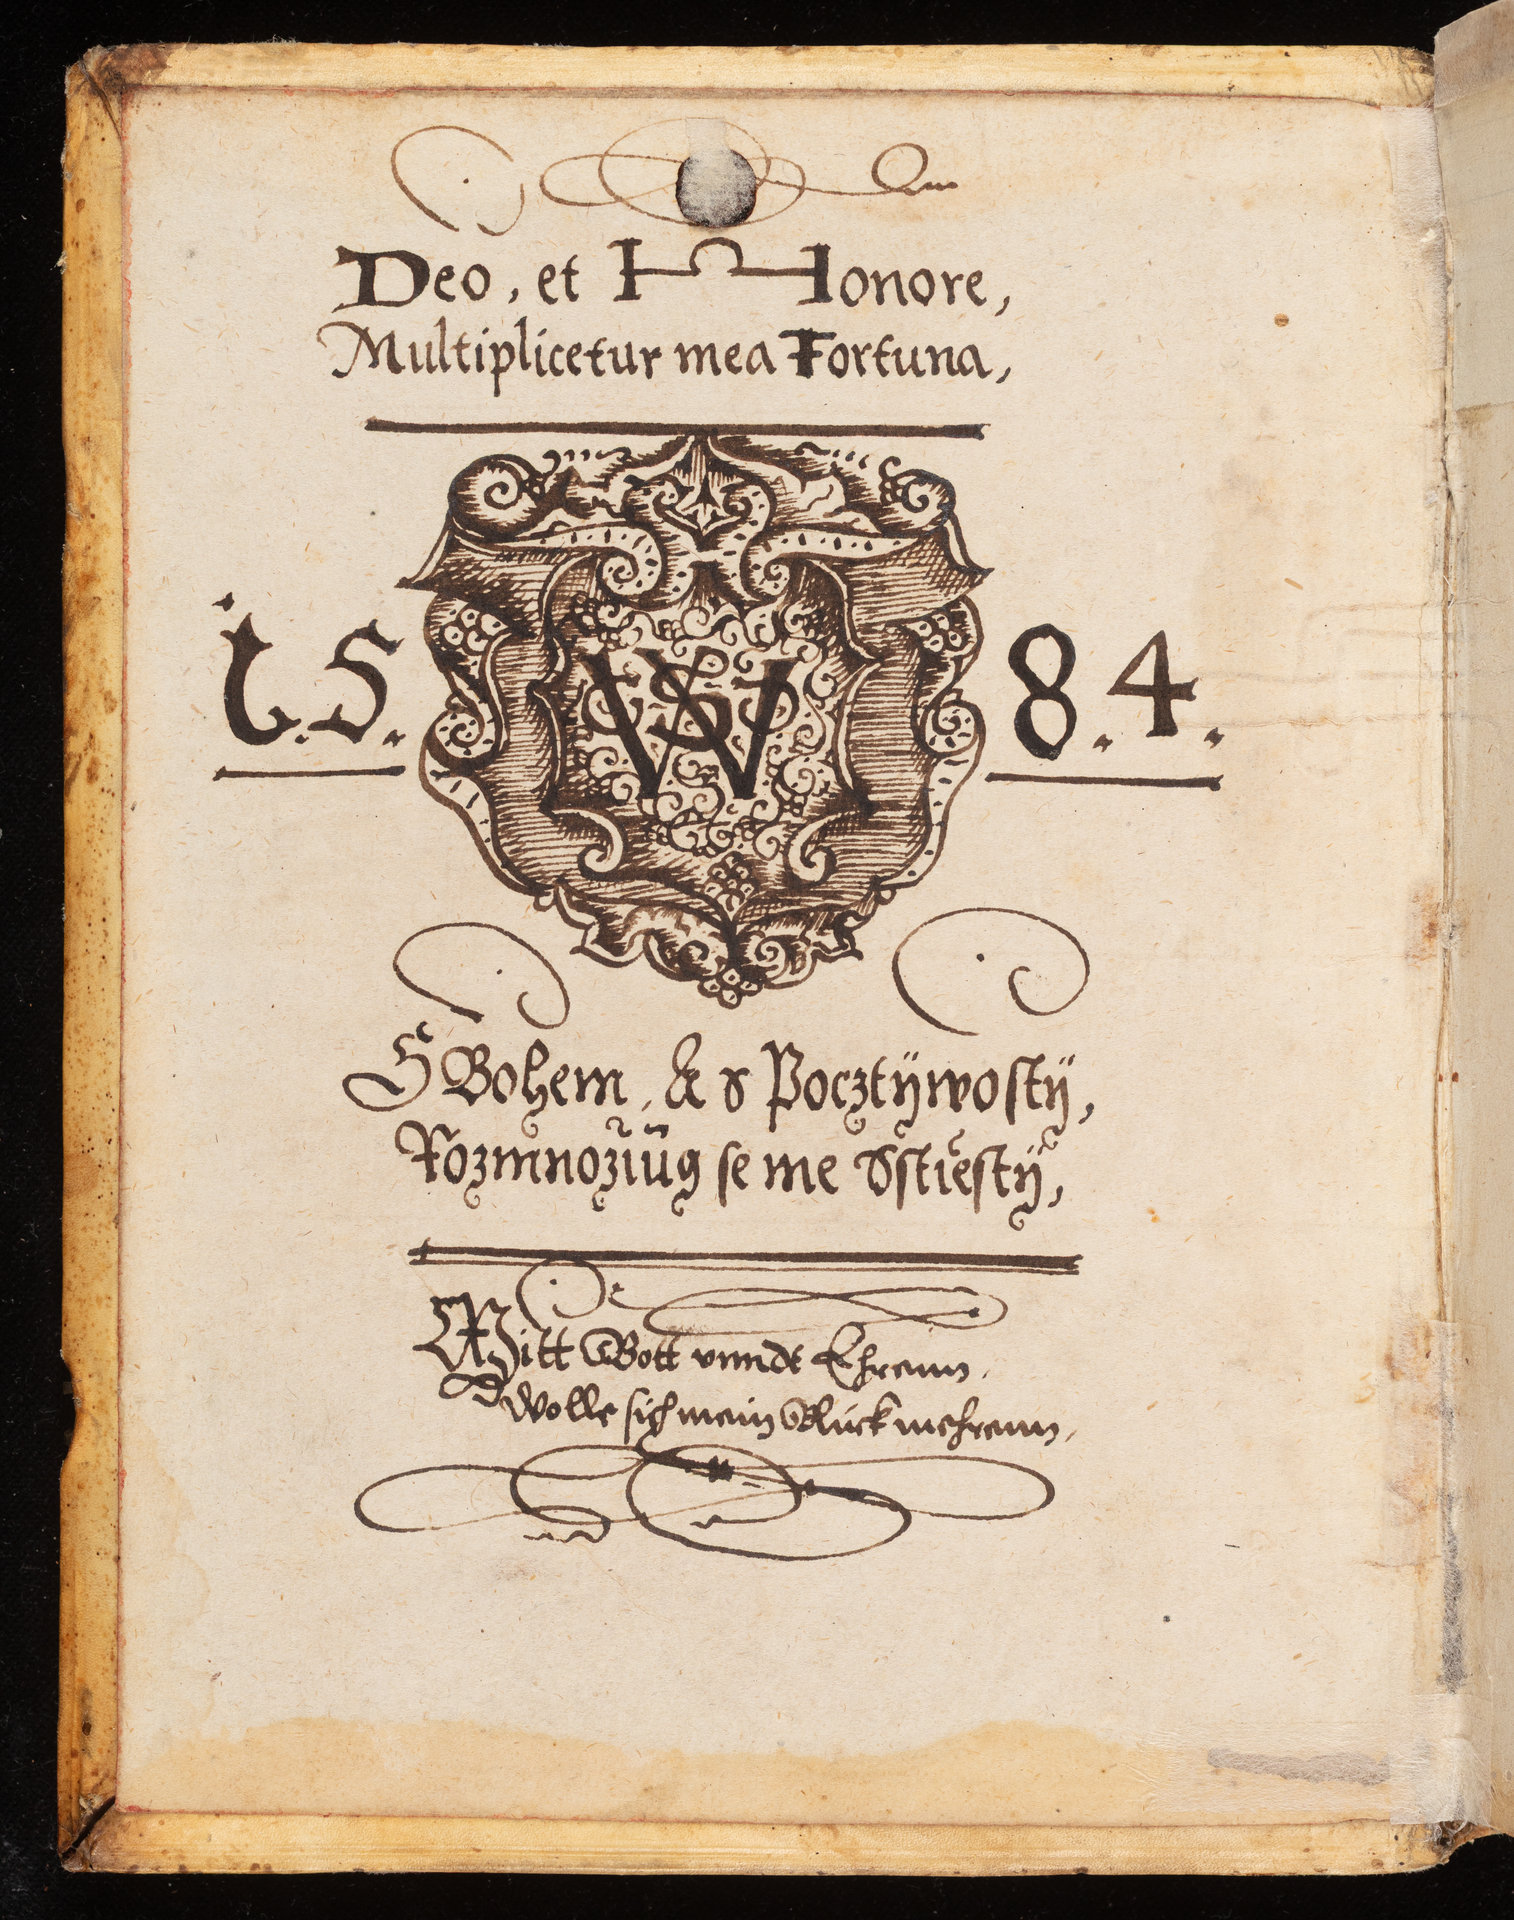 Deo, et Honore,
Multiplicetur mea Fortuna,
1.5. 8.4.
WS
S Bohem, A s Pocztÿwostÿ,
Rozmnoziűg se me Sstiestÿ,
Mitt Gott vnndt Ehrenn,
Wolle sich mein Glück mehrenn,